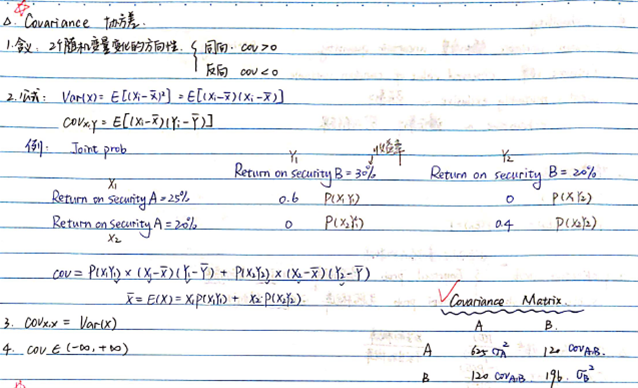 △. Covariance 协方差.
1. 含义. 2个随机变量变化的方向性. { 同向. cov>0
反向 cov<0
2. 公式: Var(x) = E[(Xi-X̄)²] = E[(Xi-X̄)(Xi-X̄)]
COVx,y = E[(Xi-X̄)(Yi-Ȳ)]
例: Joint prob
Y1 收益率 Y2
Return on security B = 30% Return on security B = 20%
X1
Return on security A = 25% 0.6 P(X1Y1) 0 P(X1Y2)
Return on security A = 20% 0 P(X2Y1) 0.4 P(X2Y2)
X2
COV = P(X1Y1) × (X1-X̄)(Y1-Ȳ) + P(X2Y2) × (X2-X̄)(Y2-Ȳ)
X̄ = E(X) = X1 P(X1Y1) + X2·P(X2Y2).
√Covariance Matrix.
3. COVx,x = Var(x)
A B.
4. COV ∈ (-∞, +∞)
A 625 σA² 120 COVA,B
B 120 COVA,B 196. σB²